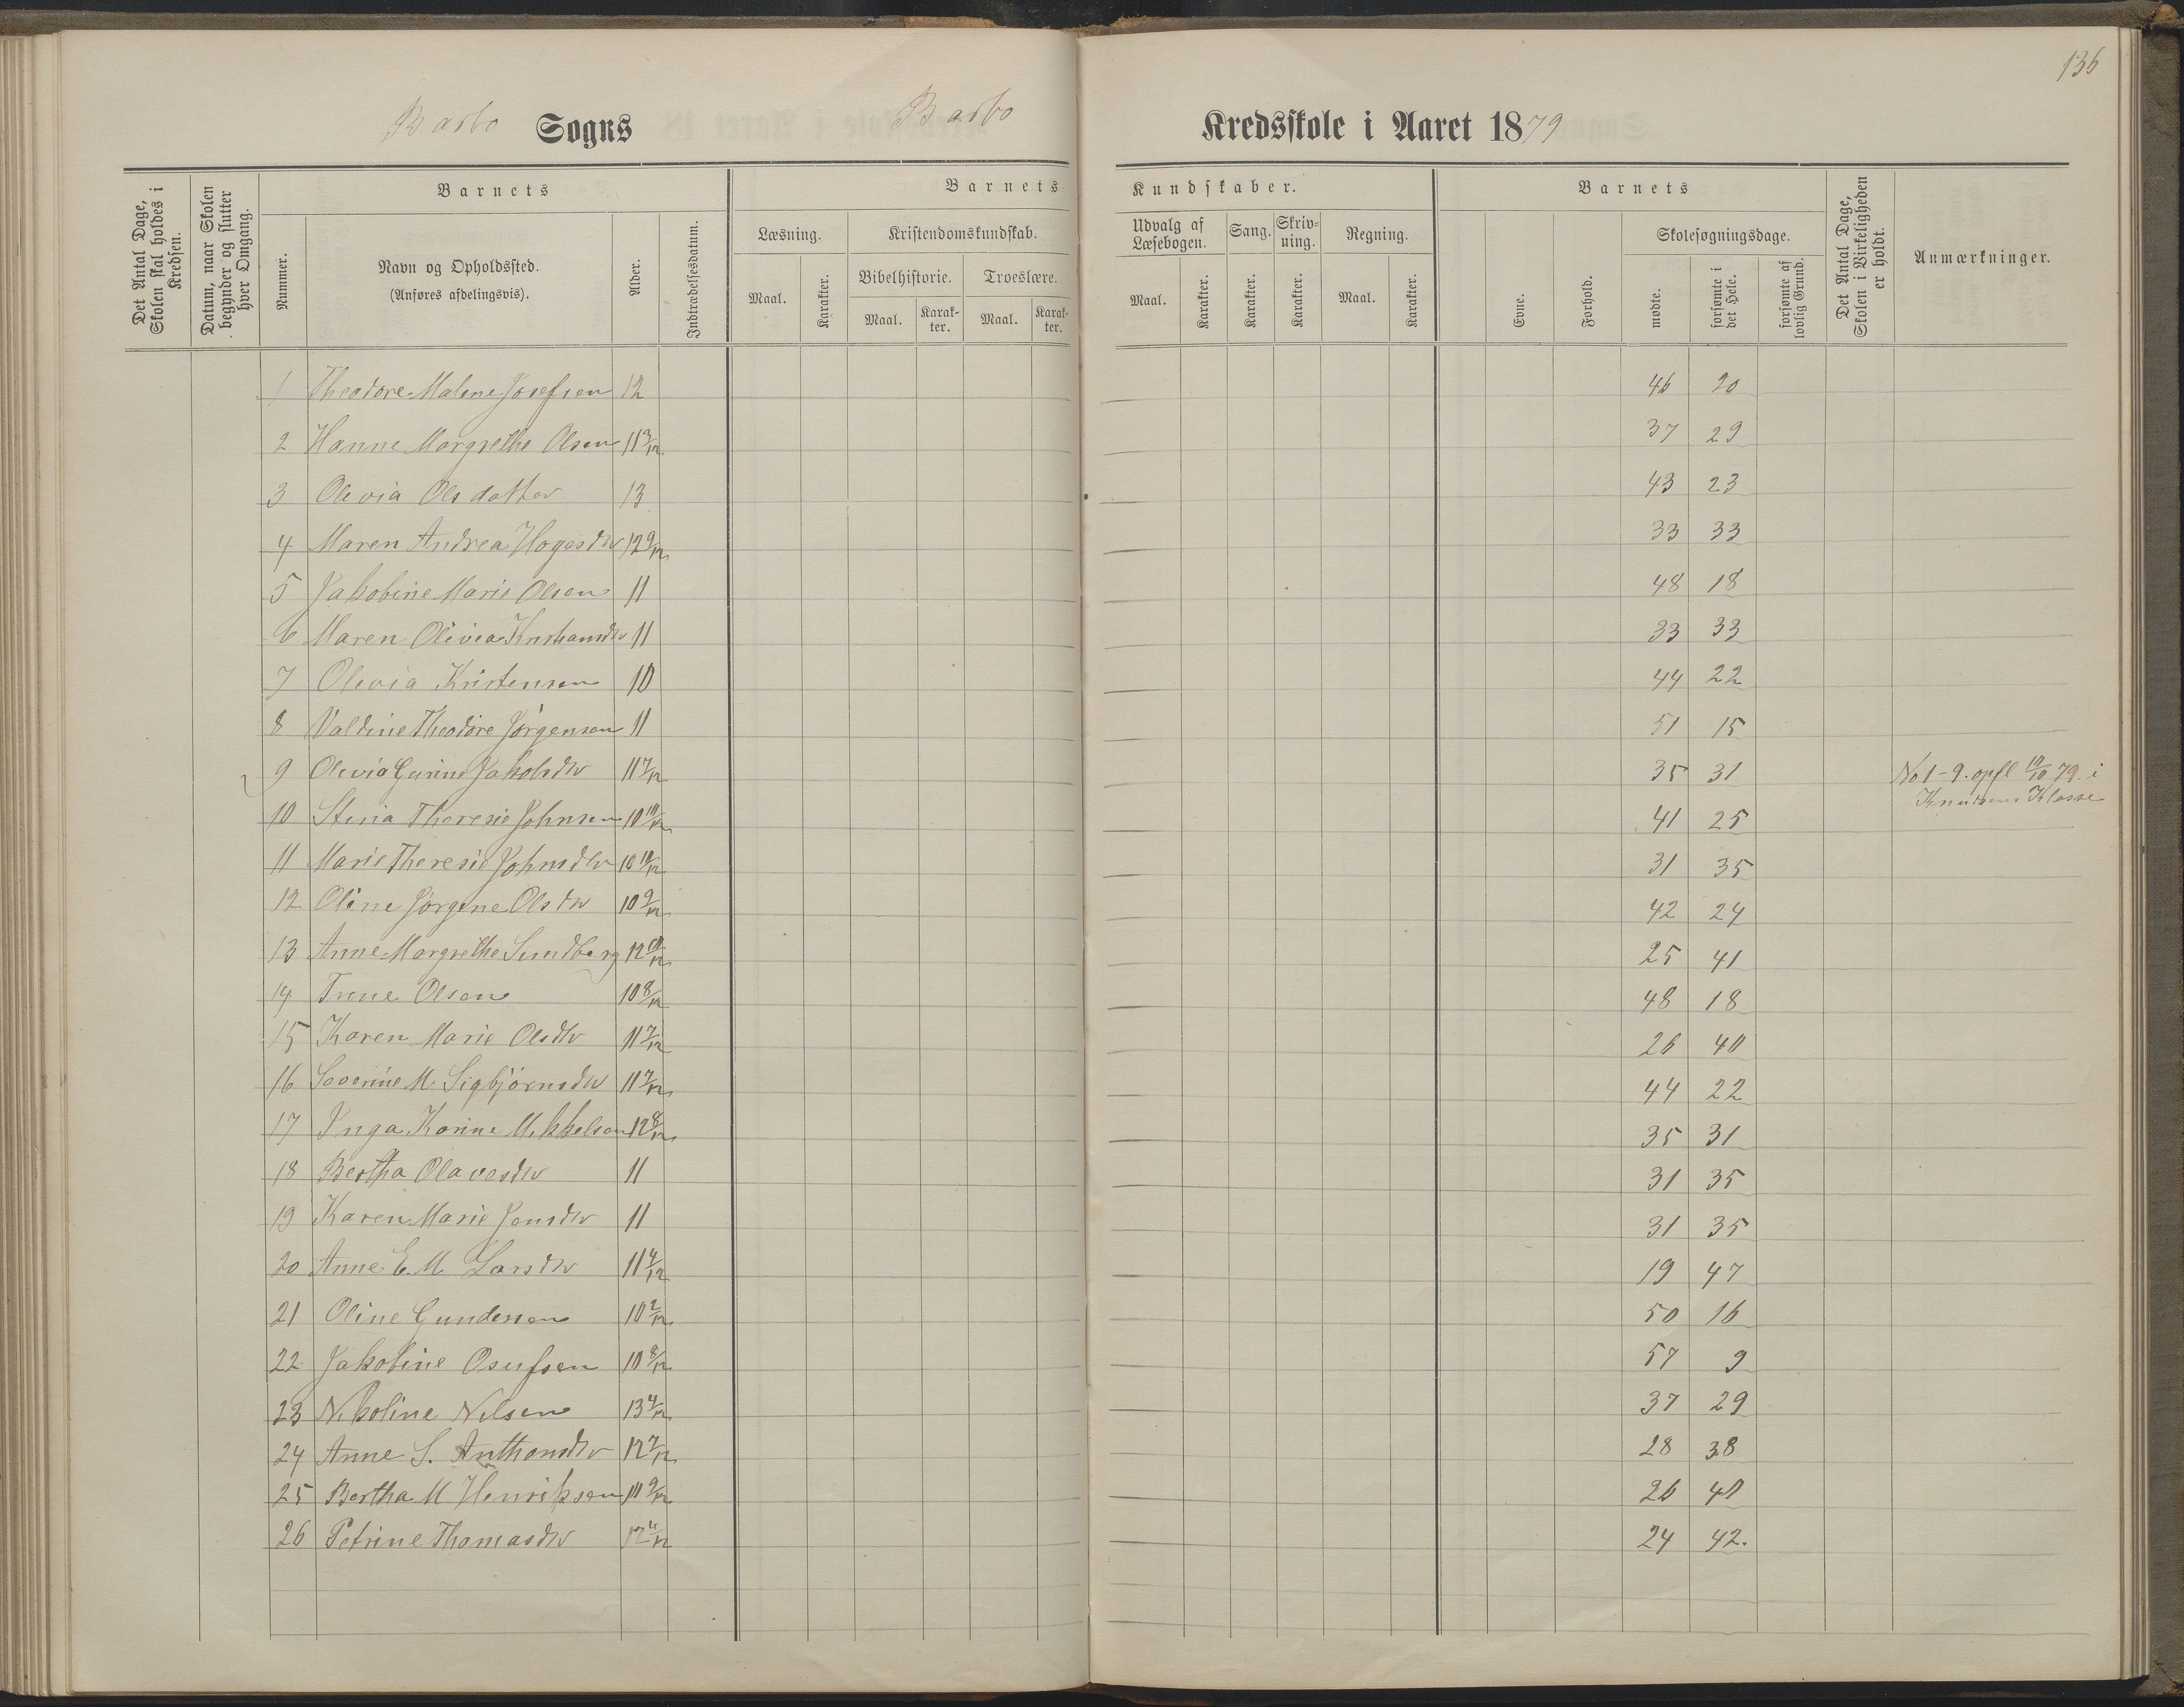 136
Barbo Sogns Barbo Kredsskole i Aaret 1879
Det Antal Dage, Skolen skal holdes i Kredsen.
Datum, naar Skolen begynder og slutter hver Omgang.
Barnets
Nummer.
Navn og Opholdssted.
(Anføres afdelingsvis).
Alder.
Indtrædelsesdatum.
Barnets Kundskaber.
Læsning.
Maal.
Karakter.
Kristendomskundskab.
Bibelhistorie.
Maal.
Karakter.
Troeslære.
Maal.
Karakter.
Udvalg af Læsebogen.
Maal.
Karakter.
Sang.
Karakter.
Skrivning.
Karakter.
Regning.
Maal.
Karakter.
Barnets
Evne.
Forhold.
Skolesøgningsdage.
mødte.
forsømte i det Hele.
forsømte af lovlig Grund.
Det Antal Dage, Skolen i Virkeligheden er holdt.
Anmærkninger.
1 Theodore Malene Josefsen 12 46 20
2 Hanne Margrethe Olsen 11 3/12 37 29
3 Olevia Olsdatter 13 43 23
4 Maren Andrea Hogesdtr 12 9/12 33 33
5 Jakobine Marie Olsen 11 48 18
6 Maren Olivia Kristiansdtr 11 33 33
7 Olevia Kristensen 10 44 22
8 Valdine Theodore Jørgensen 11 51 15
9 Olevia Gurine Jakobsdtr 11 7/12 35 31 No 1-9. opfl 10/10 79 i
Knudsens Klasse
10 Stina Theresie Johnsen 10 10/12 41 25
11 Marie Theresie Johnsdtr 10 10/12 31 35
12 Oline Jørgine Olsdtr 10 9/12 42 24
13 Anne Margrethe Sundberg 12 10/12 25 41
14 Trene Olsen 10 8/12 48 18
15 Karen Marie Olsdtr 11 7/12 26 40
16 Severine M. Sigbjørnsdtr 11 7/12 44 22
17 Inga Karine Mikkelsen 12 8/12 35 31
18 Bertha Olavesdtr 11 31 35
19 Karen Marie Jensdtr 11 31 35
20 Anne E. M. Larsdtr 11 4/12 19 47
21 Oline Gundersen 10 2/12 50 16
22 Jakobine Osufsen 10 8/12 57 9
23 Nikoline Nilsen 13 4/12 37 29
24 Anne S. Anthonsdtr 12 7/12 28 38
25 Bertha M Henriksen 10 9/12 26 40
26 Petrine Thomasdtr 12 4/12 24 42.